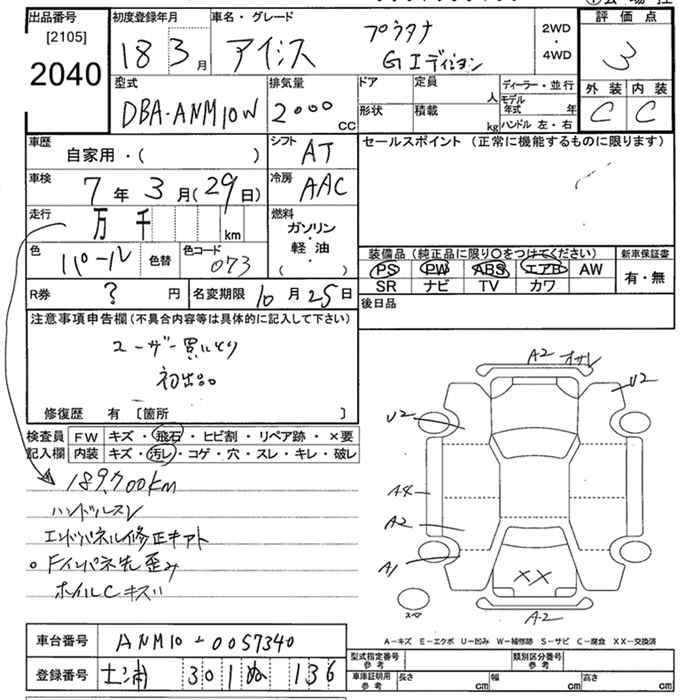 出品番号
[2105]
2040
初度登録年月
18 3月
車名・グレード
アイシス プラタナ
Gエディション
2WD
・
4WD
評価点
3
外装 内装
C C
型式
DBA-ANM10W
排気量
2000 CC
ドア
形状
定員 人
積載 kg
ディーラー・並行
モデル年式 年
ハンドル 左・右
車歴
自家用・( )
シフト
AT
セールスポイント (正常に機能するものに限ります)
車検
7年3月(29日)
冷房
AAC
走行
万 千 km
燃料
ガソリン
・
軽油
( )
色
パール
色替
色コード
073
装備品 (純正品に限り〇をつけてください)
PS PW ABS エアB AW
SR ナビ TV カワ
新車保証書
有・無
R券 ? 円
名変期限 10月25日
後日品
注意事項申告欄 (不具合内容等は具体的に記入して下さい)
ユーザー買いとり
初出品
修復歴 有 〔箇所 〕
検査員
記入欄
FW キズ・飛石・ヒビ割・リペア跡・×要
内装 キズ・汚レ・コゲ・穴・スレ・キレ・破レ
189,700km
ハンドルスレ
エンドパネル修正キアト
Fインパネ先歪み
ホイルCキズ
A2 オサレ
U2
U2
A4
A2
A1
XX
A2
A-キズ E-エクボ U-凹み W-補修跡 S-サビ C-腐食 XX-交換済
車台番号 ANM10-0057340
登録番号 土浦 301 ぬ 136
型式指定番号
参考
類別区分番号
参考
車庫証明用
参考
長さ cm 幅 cm 高さ cm